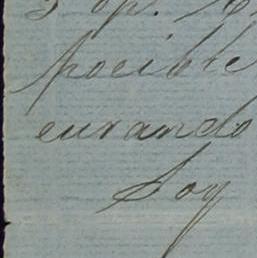 pocible
curando
Soy